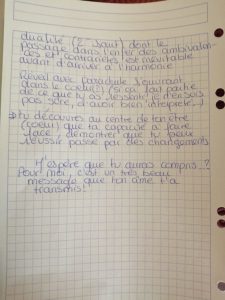 dualité (2 bout) dont le
passage dans l'enfer des ambivalan-
ces et contrariétés est inévitable
avant d'arriver à l'harmonie
Réveil avec parachute s'ouvrant
dans le coeur (si ça fait partie
de ce que tu as dessiné je n'en suis
pas sûre, d'avoir bien interprété...)
→ tu découvres au centre de ton être
(coeur) que ta capacité à faire
face, démontrer que tu peux
réussir passe par des changements
J'espère que tu auras compris ?
Pour moi, c'est un très beau
message que ton âme t'a
transmis!